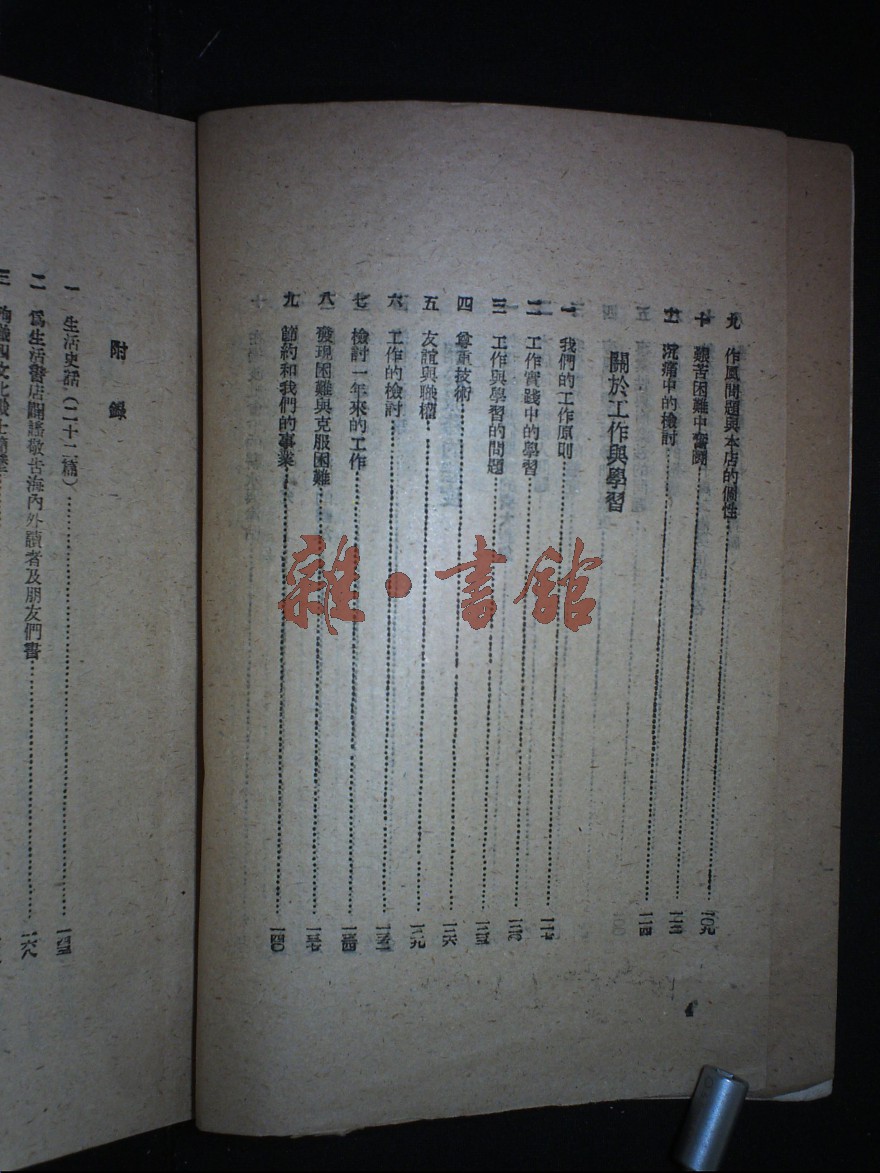 九 作風問題與本店的個性……一〇九
十 艱苦困難中奮鬥……一一二
十一 沉痛中的檢討……一一四
關於工作與學習
一 我們的工作原則……一一七
二 工作實踐中的學習……一二〇
三 工作與學習的問題……一二三
四 尊重技術……一二六
五 友誼與職權……一二九
六 工作的檢討……
七 檢討一年來的工作……一三四
八 發現困難與克服困難……一三七
九 節約和我們的事業……一四〇
4
附錄
一 生活史話(二十二篇)……一四三
二 爲生活書店闢謠敬告海內外讀者及朋友們書……一六八
三
雜·書館